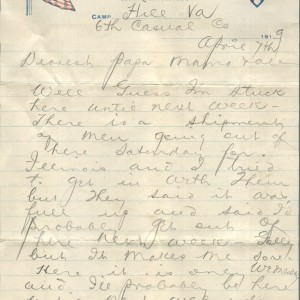 CAMP Hill Va
6th Casual Co
April 7th 1919
Dearest Papa Mama & all
Well Guess I'm stuck
here until next week -
There is a shipment
of men going out of
here Saturday for
Illinois and I tried
to get in with Them
but They said it was
full up and said I'd
probably get out of
here next week
but It makes me sore
Here it is only Monday
and I'll probably be here